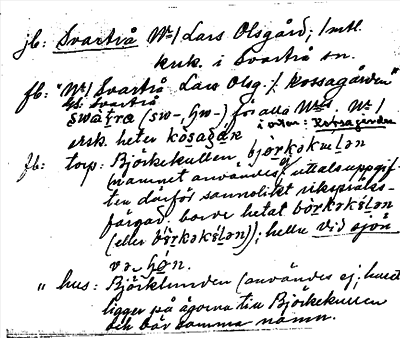 jb: Svartrå No 1 Lars Olsgård; 1 mtl.
krk. i Svartrå sn.
fb: "No 1 Svartrå Lars Olsg. /. Kossagården"
gs. Svartrå
swàt̯ra (sw-, ɧw-) för alla No 1
i orten: Kossagården
ensk. heter kòsagák
fb: torp: Björkekullen, björkəkulən
(namnet användes ej, uttalsuppgif-
ten därför sannolikt rikspråks-
färgad. borde hetat börkəkölən
(eller börkəkélən)); heller vid sjön
və ɧön.
" hus: Björklunden (användes ej; huset
ligger på ägorna till Björkekullen
och bär samma namn.